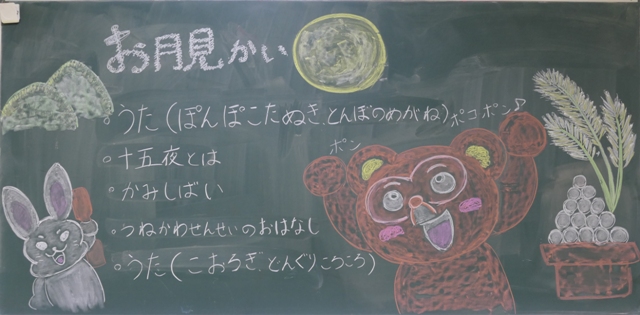 お月見かい
。うた(ぽんぽこたぬき、とんぼのめがね)ポコポン♪
。十五夜とは
ポン
。かみしばい
。つねかわせんせいのおはなし
。うた(こおろぎ、とんぐりころころ)